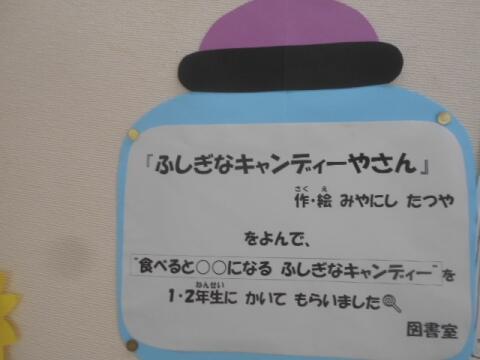 『ふしぎなキャンディーやさん』
作・絵 みやにし たつや
をよんで、
"食べると○○になる ふしぎなキャンディー"を
1・2年生に かいて もらいました
図書室